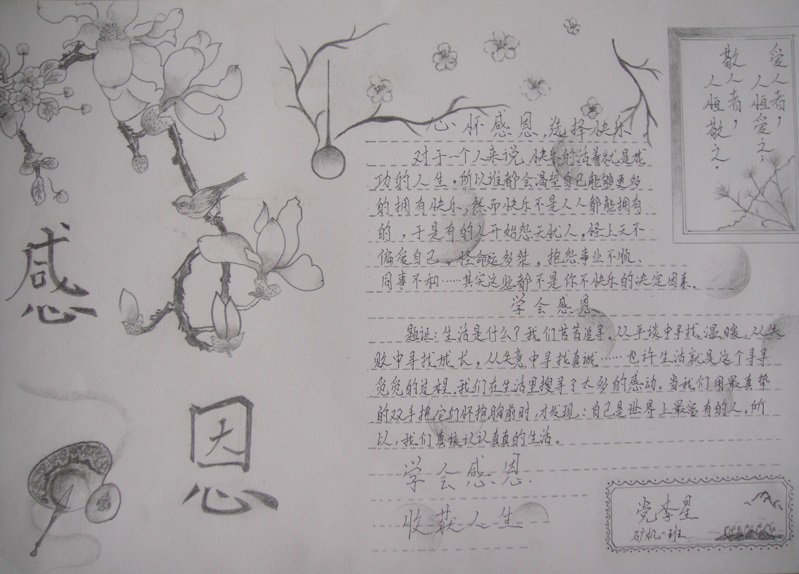 感
恩
心怀感恩,选择快乐
对于一个人来说,快乐的活着就是成
功的人生。所以谁都会渴望自己能够更多
的拥有快乐,然而快乐不是人人都能拥有
的,于是有的人开始怨天尤人,怪上天不
偏爱自己,怪命运多桀,抱怨事业不顺、
同事不和……其实这些都不是你不快乐的决定因素。
学会感恩
题记:生活是什么?我们苦苦追寻,从平淡中寻找温暖,从失
败中寻找成长,从失意中寻找真诚……也许生活就是这个寻寻
觅觅的过程,我们在生活里搜寻了太多的感动,当我们用最真挚
的双手把它们怀抱胸前时,才发现:自己是世界上最富有的人。所
以,我们真该认认真真的生活。
学会感恩
收获人生
爱人者,
人恒爱之。
敬人者,
人恒敬之。
党李星
矿机一班